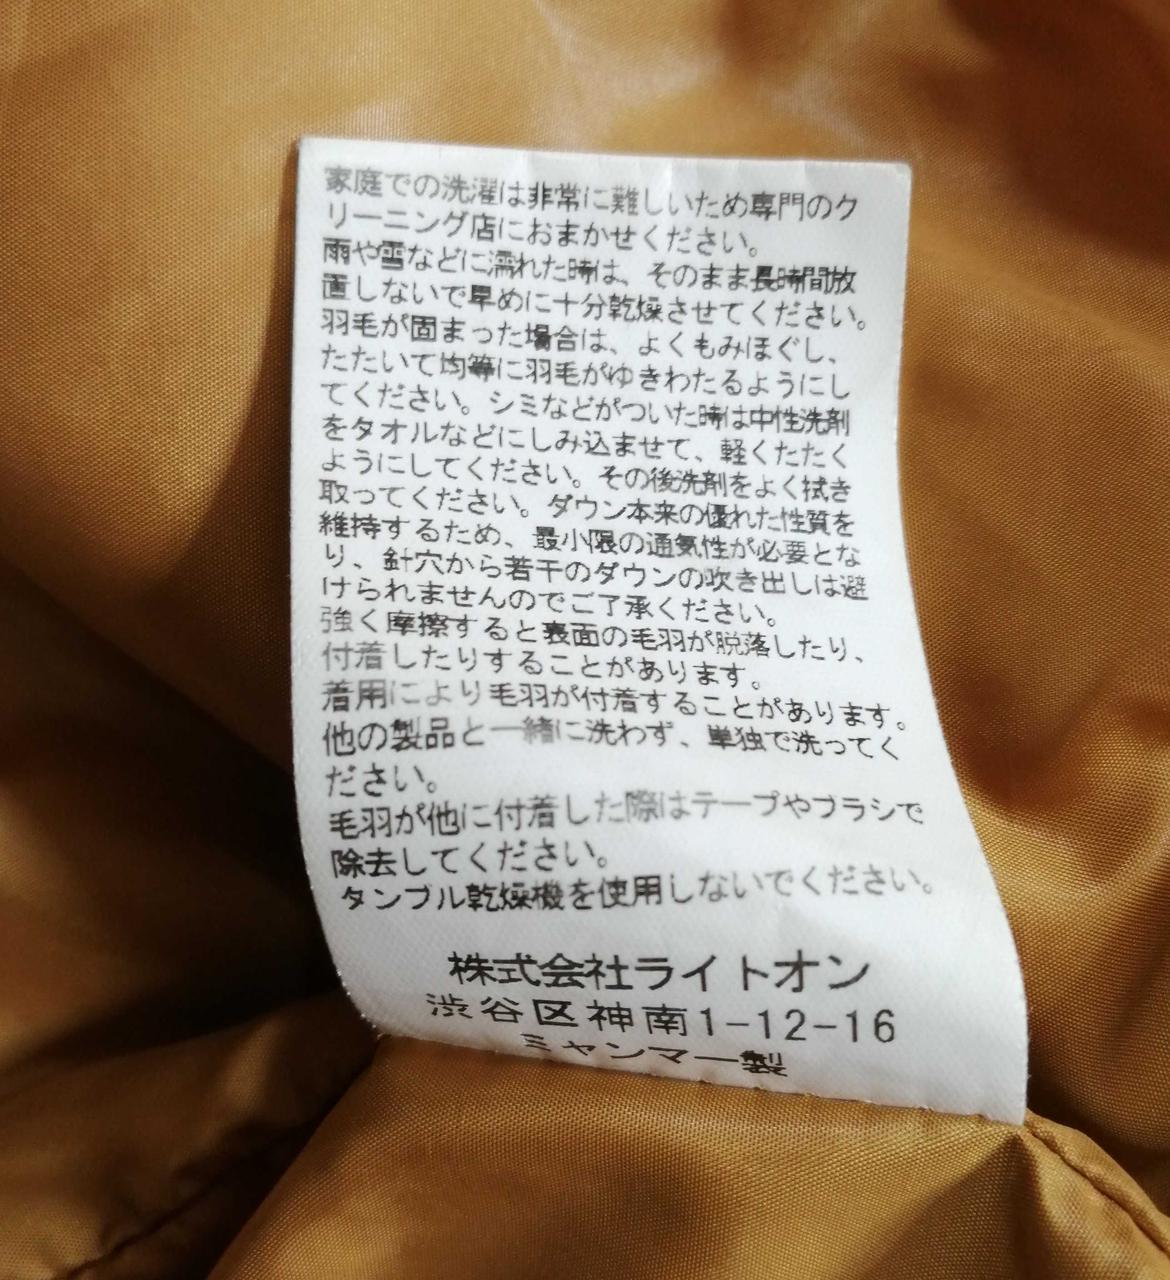 家庭での洗濯は非常に難しいため専門のク
リーニング店におまかせください。
雨や雪などに濡れた時は、そのまま長時間放
置しないで早めに十分乾燥させてください。
羽毛が固まった場合は、よくもみほぐし、
たたいて均等に羽毛がゆきわたるようにし
てください。シミなどがついた時は中性洗剤
をタオルなどにしみ込ませて、軽くたたく
ようにしてください。その後洗剤をよく拭き
取ってください。ダウン本来の優れた性質を
維持するため、最小限の通気性が必要とな
り、針穴から若干のダウンの吹き出しは避
けられませんのでご了承ください。
強く摩擦すると表面の毛羽が脱落したり、
付着したりすることがあります。
着用により毛羽が付着することがあります。
他の製品と一緒に洗わず、単独で洗ってく
ださい。
毛羽が他に付着した際はテープやブラシで
除去してください。
タンブル乾燥機を使用しないでください。
株式会社ライトオン
渋谷区神南1-12-16
ミャンマー製